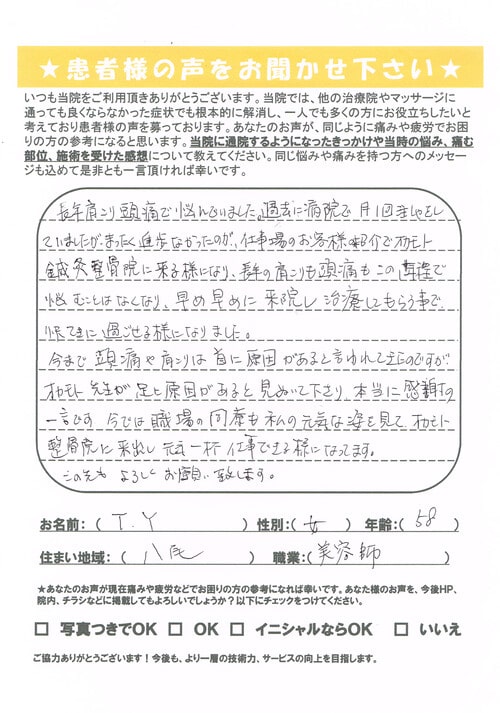 ★患者様の声をお聞かせ下さい★
いつも当院をご利用頂きありがとうございます。当院では、他の治療院やマッサージに
通っても良くならなかった症状でも根本的に解消し、一人でも多くの方にお役立ちしたいと
考えており患者様の声を募っております。あなたのお声が、同じように痛みや疲労でお困
りの方の参考になると思います。当院に通院するようになったきっかけや当時の悩み、痛む
部位、施術を受けた感想について教えてください。同じ悩みや痛みを持つ方へのメッセー
ジも込めて是非とも一言頂ければ幸いです。
長年肩こり頭痛で悩んでいました。過去に病院で月1回
していましたが、まったく進歩なかったのが、仕事場のお客様の紹介でオカモト
鍼灸整骨院に来る様になり、長年の肩こりも頭痛もこの
悩むことはなくなり、早め早めに来院し治療してもらう事で、
快てきに過ごせる様になりました。
今まで頭痛や肩こりは首に原因があると言われてたのですが
オカモト先生が足と原因があると見ぬいて下さり、本当に感謝の
一言です 今では職場の同僚も私の元気な姿を見て、オカモト
整骨院に来出し元気一杯仕事できる様になってます。
この先も よろしく お願い致します。
お名前:( T.Y ) 性別:( 女 ) 年齢:( 58 )
住まい地域:( 八尾 ) 職業:( 美容師 )
★あなたのお声が現在痛みや疲労などでお困りの方の参考になれば幸いです。あなた様のお声を、今後HP、
院内、チラシなどに掲載してもよろしいでしょうか?以下にチェックをつけてください。
□ 写真つきでOK □ OK □ イニシャルならOK □ いいえ
ご協力ありがとうございます!今後も、より一層の技術力、サービスの向上を目指します。